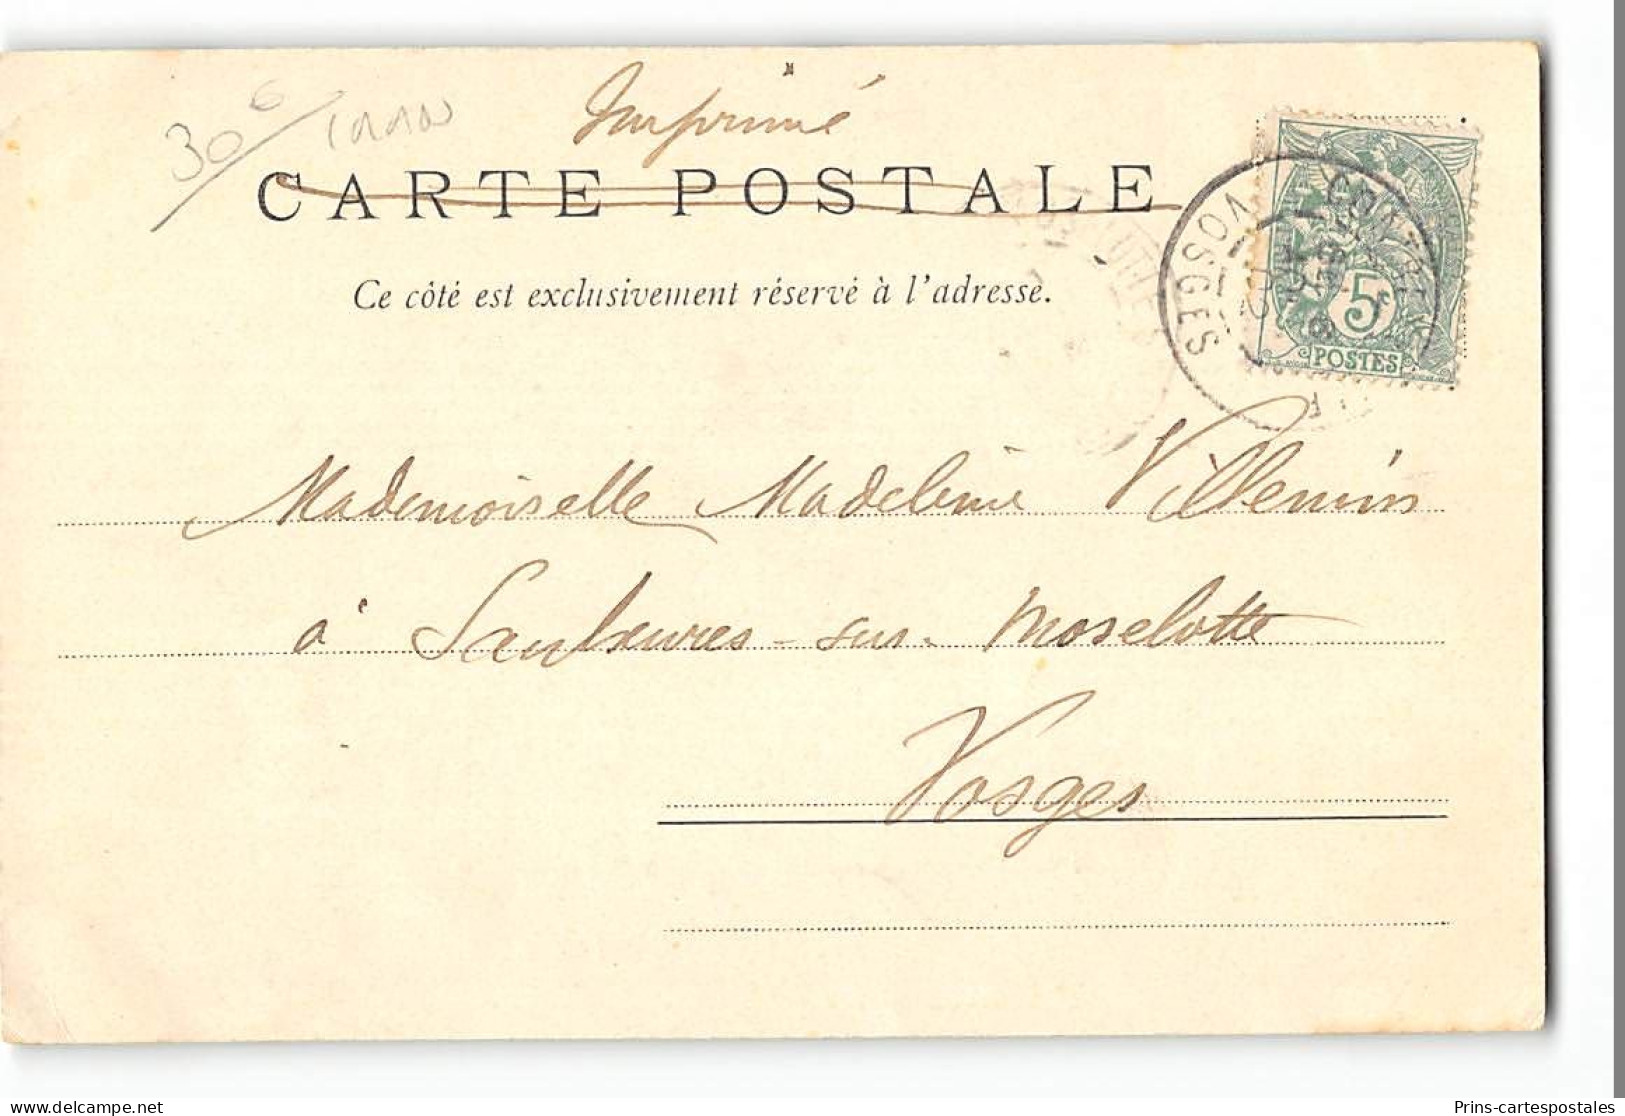 30€
Imprimé
CARTE POSTALE
Ce côté est exclusivement réservé à l'adresse.
VOSGES
5c
POSTES
Mademoiselle Madeleine Villemin
à Saulxures-sur-Moselotte
Vosges
delcampe.net
Prins-cartespostales